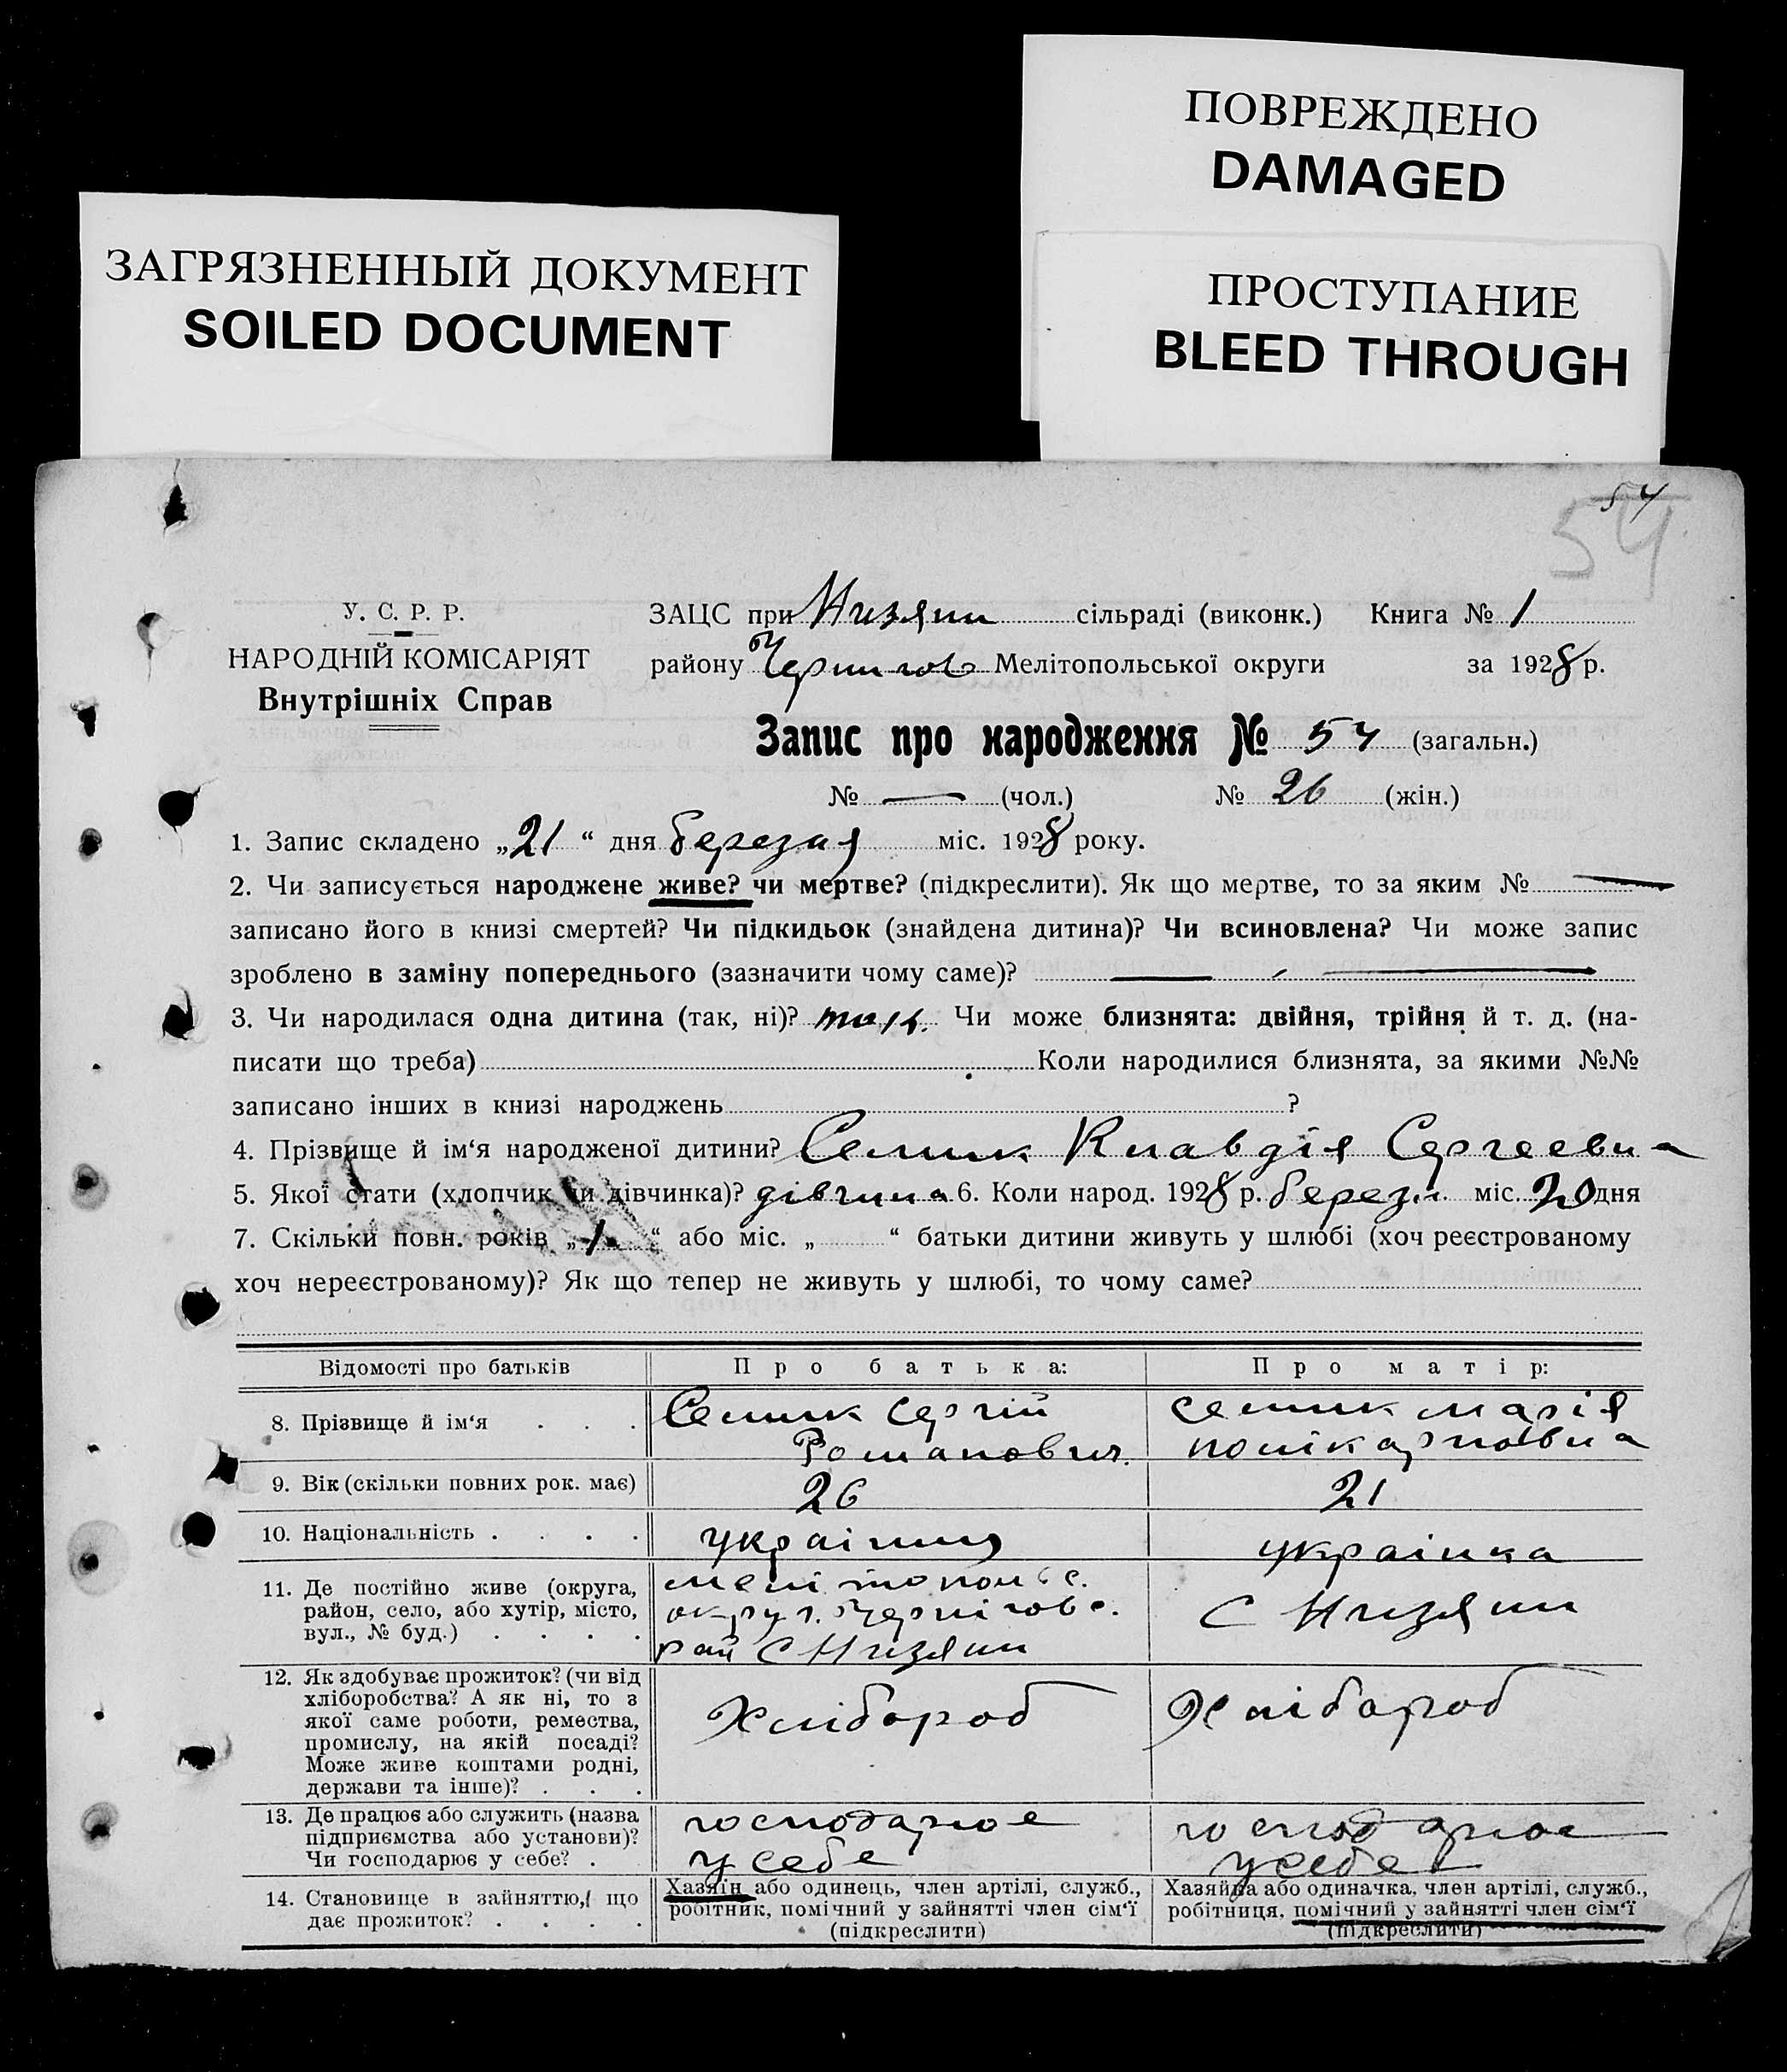 ПОВРЕЖДЕНО
DAMAGED
ЗАГРЯЗНЕННЫЙ ДОКУМЕНТ
SOILED DOCUMENT
ПРОСТУПАНИЕ
BLEED THROUGH
54
54
У. С. Р. Р.
НАРОДНІЙ КОМІСАРІЯТ
Внутрішніх Справ
ЗАЦС при Низяни сільраді (виконк.) Книга № 1
району Чернигов Мелітопольської округи за 1928 р.
Запис про народження № 54 (загальн.)
№ — (чол.) № 26 (жін.)
1. Запис складено „21“ дня березня міс. 1928 року.
2. Чи записується народжене живе? чи мертве? (підкреслити). Як що мертве, то за яким № —
записано його в книзі смертей? Чи підкидьок (знайдена дитина)? Чи всиновлена? Чи може запис
зроблено в заміну попереднього (зазначити чому саме)? — —
3. Чи народилася одна дитина (так, ні)? так. Чи може близнята: двійня, трійня й т. д. (на-
писати що треба) Коли народилися близнята, за якими №№
записано інших в книзі народжень ?
4. Прізвище й ім‘я народженої дитини? Семик Клавдія Сергеевна
5. Якої стати (хлопчик чи дівчинка)? дівчина 6. Коли народ. 1928 р. березн. міс. 20 дня
7. Скільки повн. років „1“ або міс. „ “ батьки дитини живуть у шлюбі (хоч реєстрованому
хоч нереєстрованому)? Як що тепер не живуть у шлюбі, то чому саме?
Відомості про батьків
Про батька:
Про матір:
8. Прізвище й ім‘я . . .
Семик Сергій
Романович.
Семик Марія
полікарповна
9. Вік (скільки повних рок. має)
26
21
10. Національність . . . .
українець
українка
11. Де постійно живе (округа,
район, село, або хутір, місто,
вул., № буд.) . . . .
мелітопольс.
округ. Черніговс.
рай С Низяни
С Низяни
12. Як здобуває прожиток? (чи від
хліборобства? А як ні, то з
якої саме роботи, ремества,
промислу, на якій посаді?
Може живе коштами родні,
держави та інше)? . . .
Хлібороб
Хлібороб
13. Де працює або служить (назва
підприємства або установи)?
Чи господарює у себе? .
господарюе
у себе
господарюе
у себе
14. Становище в зайняттю, що
дає прожиток? . . . .
Хазяїн або одинець, член артілі, служб.,
робітник, помічний у зайнятті член сім‘ї
(підкреслити)
Хазяйка або одиначка, член артілі, служб.,
робітниця, помічний у зайнятті член сім‘ї
(підкреслити)